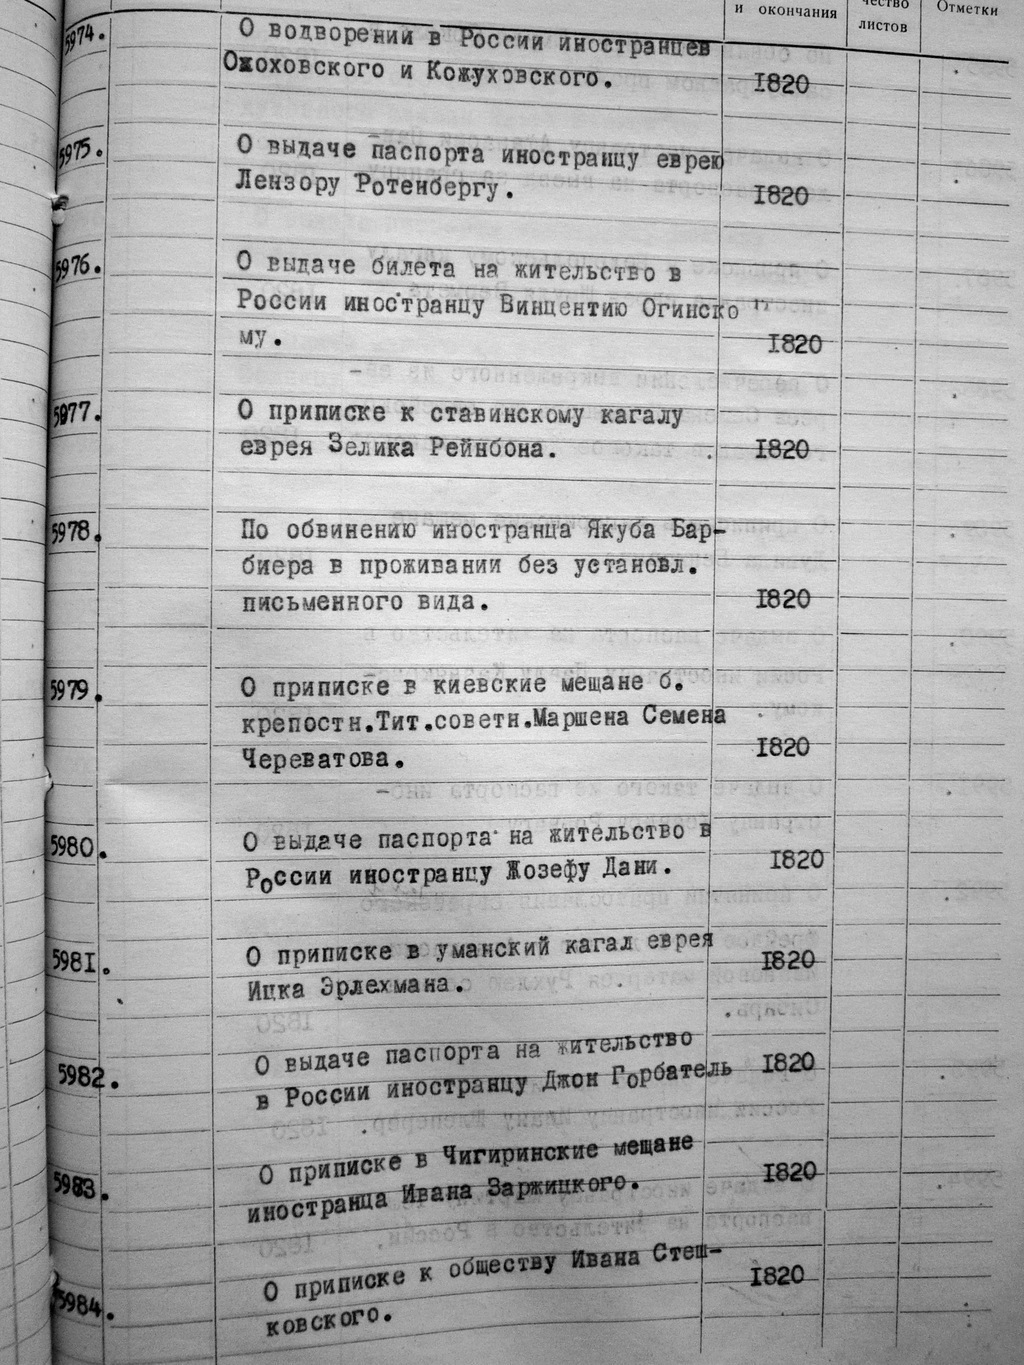 и окончания
чество
листов
Отметки
5974.
О водворении в России иностранцев
Ожоховского и Кожуховского.
1820
5975.
О выдаче паспорта иностранцу еврею
Лензору Ротенбергу.
1820
5976.
О выдаче билета на жительство в
России иностранцу Винцентию Огинско
му.
1820
5977.
О приписке к ставинскому кагалу
еврея Зелика Рейнбона.
1820
5978.
По обвинению иностранца Якуба Бар-
биера в проживании без установл.
письменного вида.
1820
5979.
О приписке в киевские мещане б.
крепостн.Тит.советн.Маршена Семена
Череватова.
1820
5980.
О выдаче паспорта на жительство в
России иностранцу Жозефу Дани.
1820
5981.
О приписке в уманский кагал еврея
Ицка Эрлехмана.
1820
5982.
О выдаче паспорта на жительство
в России иностранцу Джон Горбатель
1820
5983.
О приписке в Чигиринские мещане
иностранца Ивана Заржицкого.
1820
5984.
О приписке к обществу Ивана Стеш-
ковского.
1820